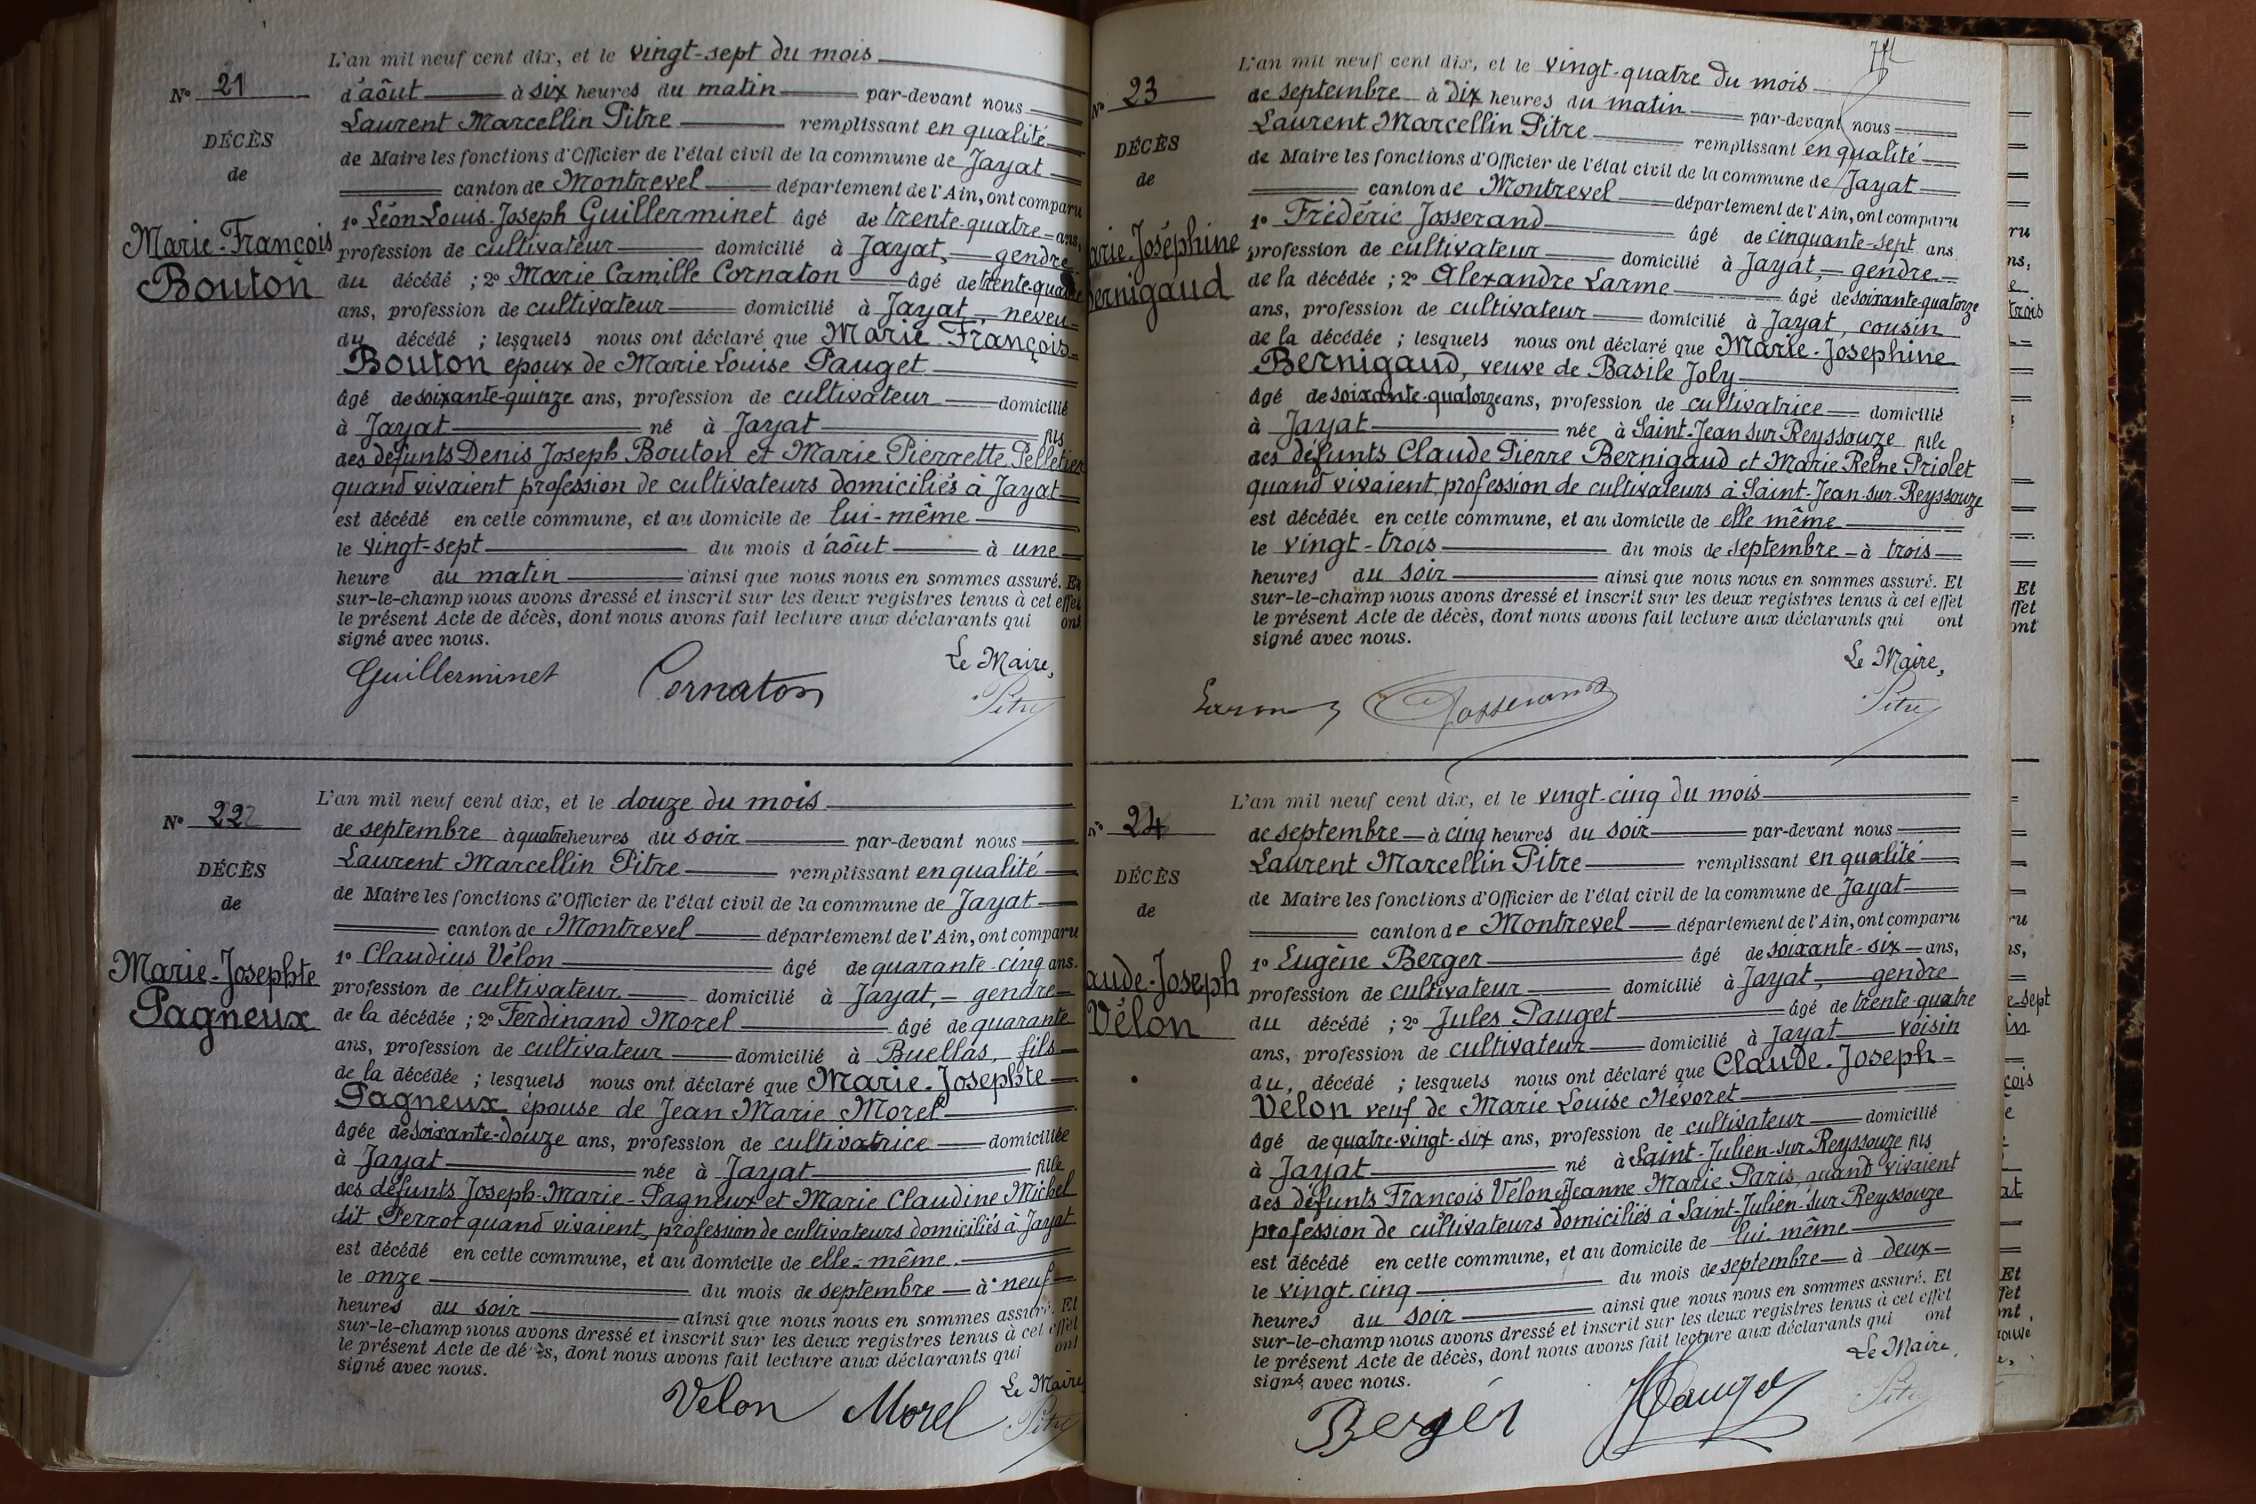 N° 21
DÉCÈS
de
Marie-François
Bouton
L'an mil neuf cent dix, et le vingt-sept du mois
d'aôut à six heures du matin par-devant nous
Laurent Marcellin Pitre remplissant en qualité
de Maire les fonctions d'Officier de l'état civil de la commune de Jayat
canton de Montrevel département de l'Ain, ont comparu
1° Léon-Louis-Joseph Guillerminet âgé de trente-quatre ans,
profession de cultivateur domicilié à Jayat, gendre
du décédé ; 2° Marie Camille Cornaton âgé de trente-quatre
ans, profession de cultivateur domicilié à Jayat, neveu
du décédé ; lesquels nous ont déclaré que Marie-François
Bouton époux de Marie Louise Pauget
âgé de soixante-quinze ans, profession de cultivateur domicilié
à Jayat né à Jayat fils
des défunts Denis Joseph Bouton et Marie Pierrette Pelletier
quand vivaient profession de cultivateurs domiciliés à Jayat
est décédé en cette commune, et au domicile de lui-même
le vingt-sept du mois d'aôut à une
heure du matin ainsi que nous nous en sommes assuré. Et
sur-le-champ nous avons dressé et inscrit sur les deux registres tenus à cet effet
le présent Acte de décès, dont nous avons fait lecture aux déclarants qui ont
signé avec nous.
Le Maire,
Guillerminet Cornaton Pitre
N° 22
DÉCÈS
de
Marie-Josephte
Pagneux
L'an mil neuf cent dix, et le douze du mois
de septembre à quatre heures du soir par-devant nous
Laurent Marcellin Pitre remplissant en qualité
de Maire les fonctions d'Officier de l'état civil de la commune de Jayat
canton de Montrevel département de l'Ain, ont comparu
1° Claudius Vélon âgé de quarante-cinq ans.
profession de cultivateur domicilié à Jayat, gendre
de la décédée ; 2° Ferdinand Morel âgé de quarante
ans, profession de cultivateur domicilié à Buellas, fils
de la décédée ; lesquels nous ont déclaré que Marie-Josephte
Pagneux épouse de Jean Marie Morel
âgée de soixante-douze ans, profession de cultivatrice domiciliée
à Jayat née à Jayat fille
des défunts Joseph-Marie-Pagneux et Marie Claudine Michel
dit Perrot quand vivaient, profession de cultivateurs domiciliés à Jayat
est décédé en cette commune, et au domicile de elle-même.
le onze du mois de septembre à neuf
heures du soir ainsi que nous nous en sommes assuré. Et
sur-le-champ nous avons dressé et inscrit sur les deux registres tenus à cet effet
le présent Acte de décès, dont nous avons fait lecture aux déclarants qui ont
signé avec nous.
Le Maire
Velon Morel Pitre
N° 23
DÉCÈS
de
arie-Joséphine
Bernigaud
L'an mil neuf cent dix, et le vingt-quatre du mois
de septembre à dix heures du matin par-devant nous
Laurent Marcellin Pitre remplissant en qualité
de Maire les fonctions d'Officier de l'état civil de la commune de Jayat
canton de Montrevel département de l'Ain, ont comparu
1° Frédéric Josserand âgé de cinquante-sept ans
profession de cultivateur domicilié à Jayat, gendre
de la décédée ; 2° Alexandre Larme âgé de soixante-quatorze
ans, profession de cultivateur domicilié à Jayat, cousin
de la décédée ; lesquels nous ont déclaré que Marie-Josephine
Bernigaud, veuve de Basile Joly
âgé de soixante-quatorze ans, profession de cultivatrice domicilié
à Jayat née à Saint-Jean sur Reyssouze fille
des défunts Claude Pierre Bernigaud et Marie Reine Priolet
quand vivaient, profession de cultivateurs à Saint-Jean-sur-Reyssouze
est décédée en cette commune, et au domicile de elle même
le vingt-trois du mois de septembre à trois
heures du soir ainsi que nous nous en sommes assuré. Et
sur-le-champ nous avons dressé et inscrit sur les deux registres tenus à cet effet
le présent Acte de décès, dont nous avons fait lecture aux déclarants qui ont
signé avec nous.
Le Maire,
Josserand Pitre
N° 24
DÉCÈS
de
aude-Joseph
Vélon
L'an mil neuf cent dix, et le vingt-cinq du mois
de septembre à cinq heures du soir par-devant nous
Laurent Marcellin Pitre remplissant en qualité
de Maire les fonctions d'Officier de l'état civil de la commune de Jayat
canton de Montrevel département de l'Ain, ont comparu
1° Eugène Berger âgé de soixante-six ans,
profession de cultivateur domicilié à Jayat, gendre
du décédé ; 2° Jules Pauget âgé de trente-quatre
ans, profession de cultivateur domicilié à Jayat voisin
du décédé ; lesquels nous ont déclaré que Claude-Joseph
Vélon veuf de Marie Louise Névoret
âgé de quatre-vingt-six ans, profession de cultivateur domicilié
à Jayat né à Saint-Julien-sur-Reyssouze fils
des défunts François Vélon et Jeanne Marie Paris, quand vivaient
profession de cultivateurs domiciliés à Saint-Julien-sur Reyssouze
est décédé en cette commune, et au domicile de lui même
le vingt-cinq du mois de septembre à deux
heures du soir ainsi que nous nous en sommes assuré. Et
sur-le-champ nous avons dressé et inscrit sur les deux registres tenus à cet effet
le présent Acte de décès, dont nous avons fait lecture aux déclarants qui ont
signé avec nous.
Le Maire,
Berger JPauget Pitre